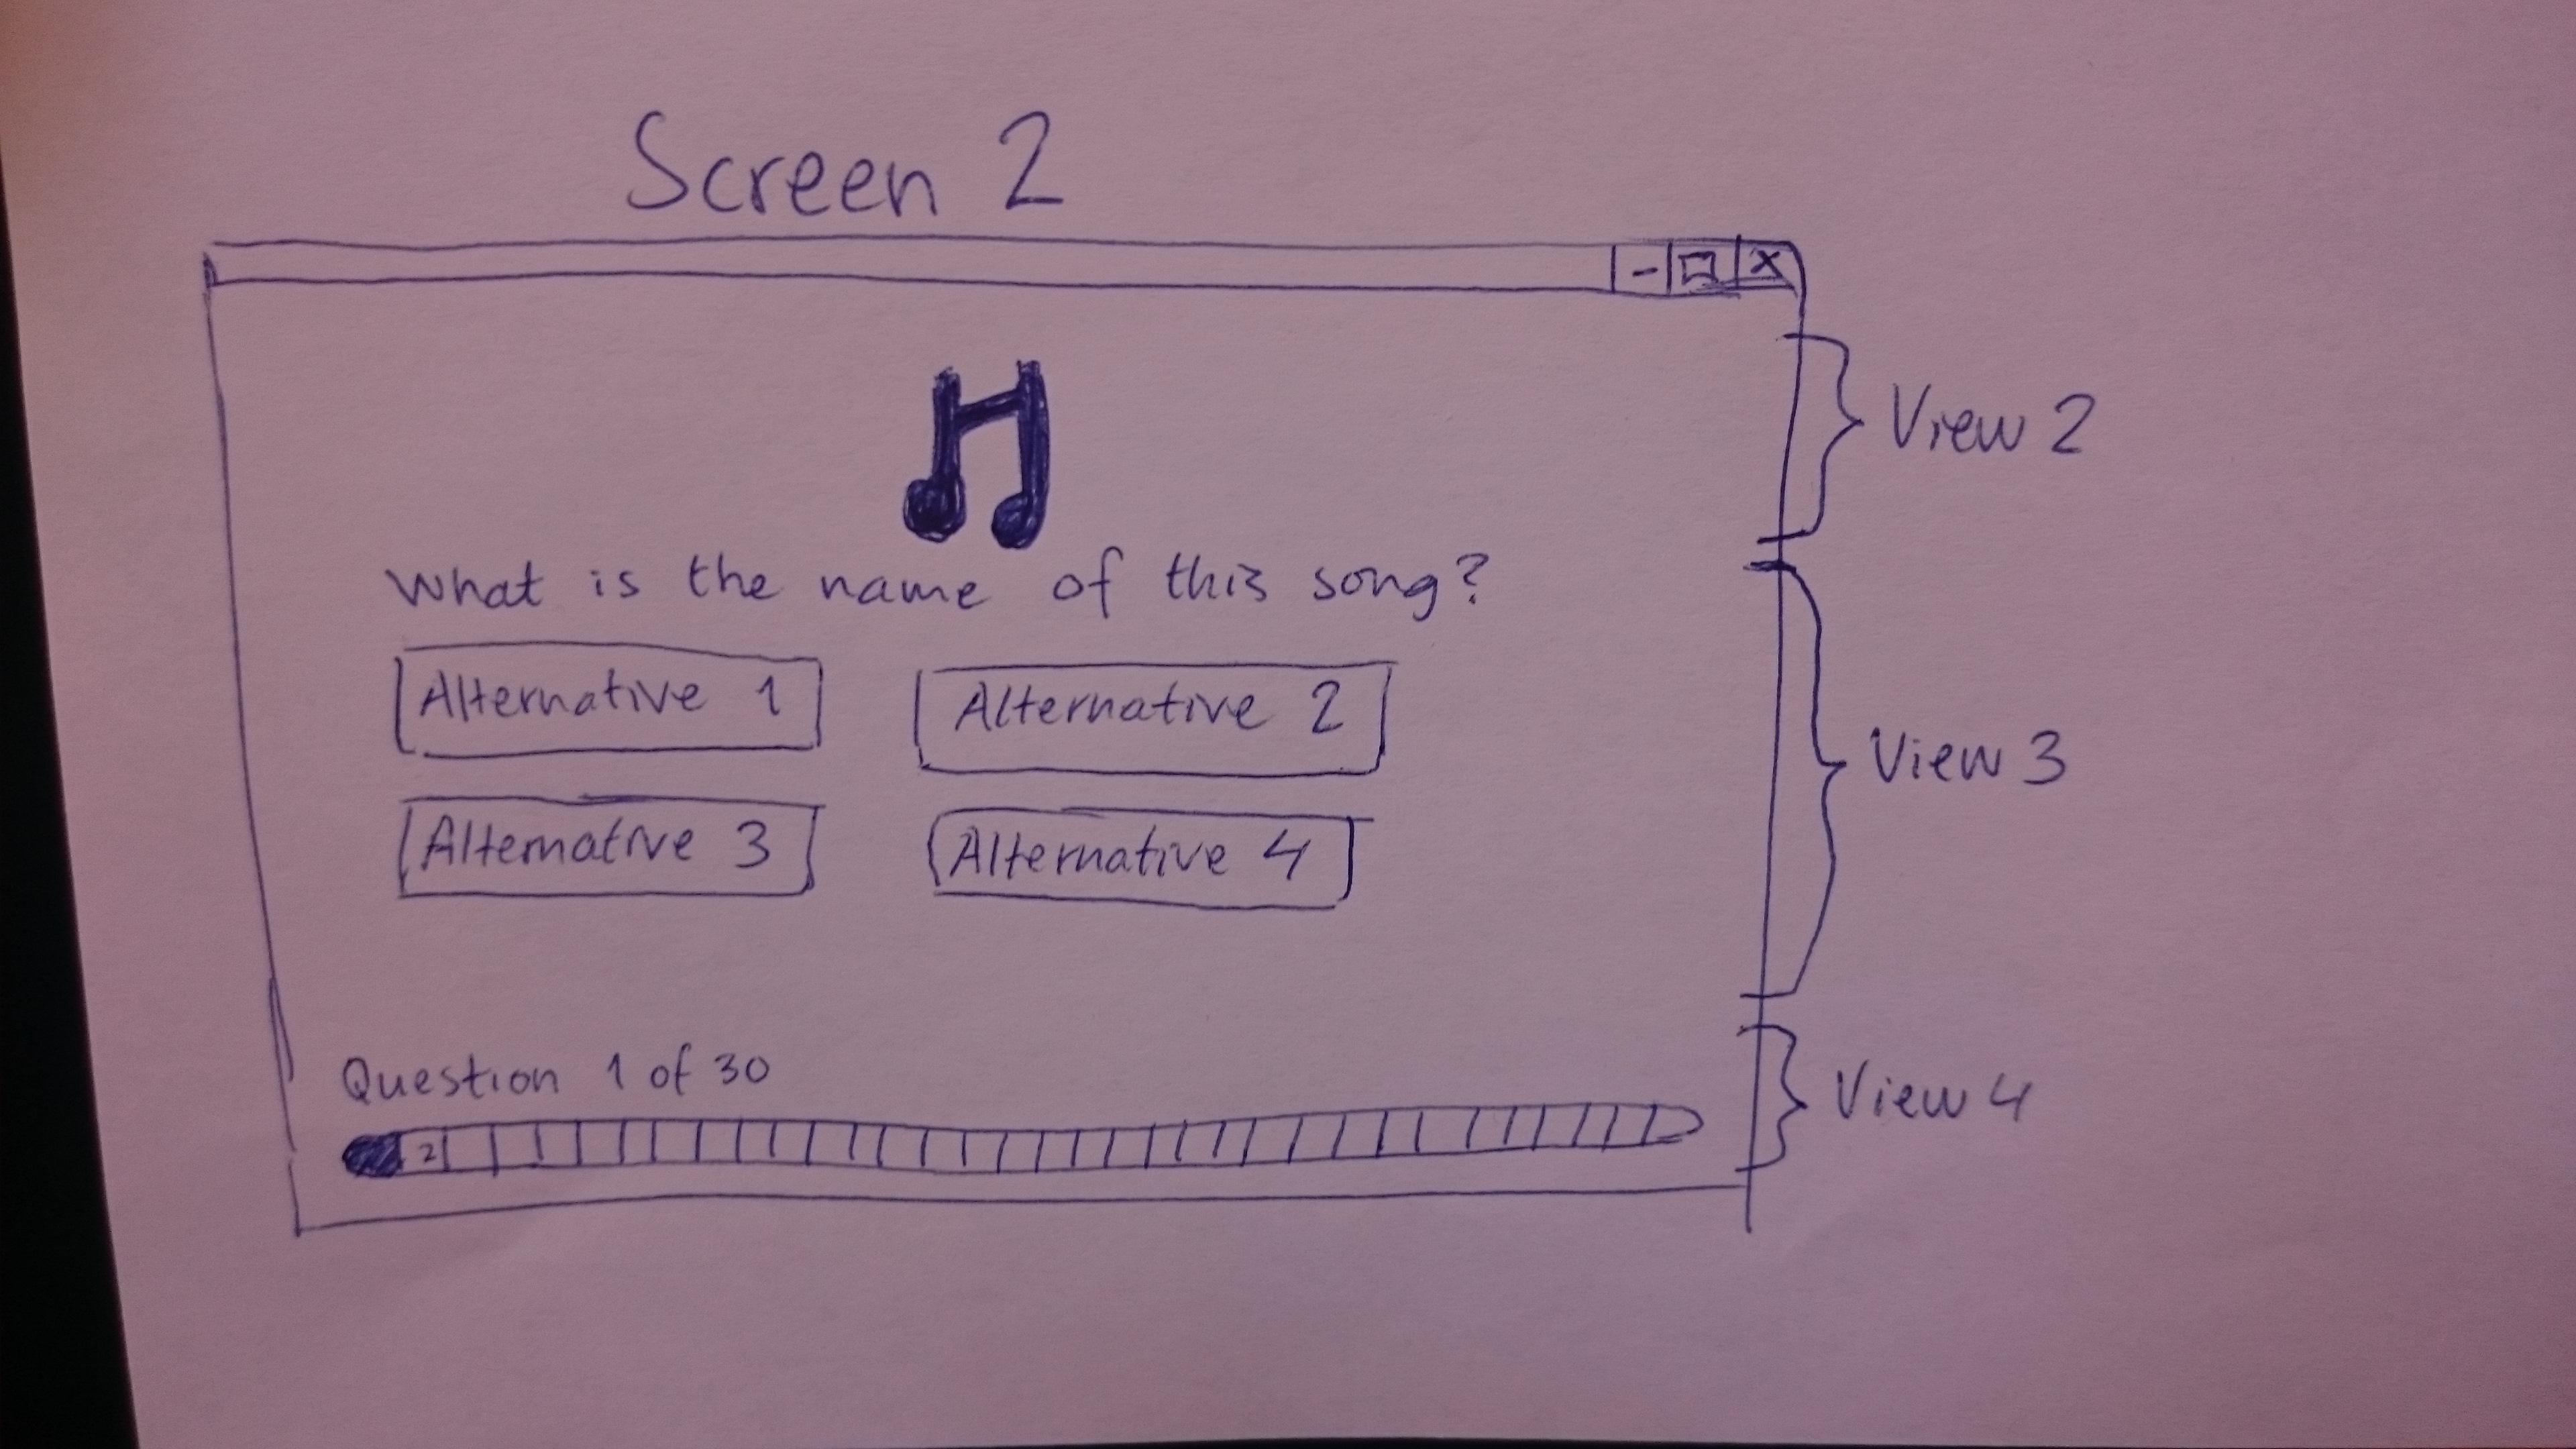 Screen 2
- □ X
View 2
What is the name of this song?
Alternative 1 Alternative 2
View 3
Alternative 3 Alternative 4
Question 1 of 30
View 4
2